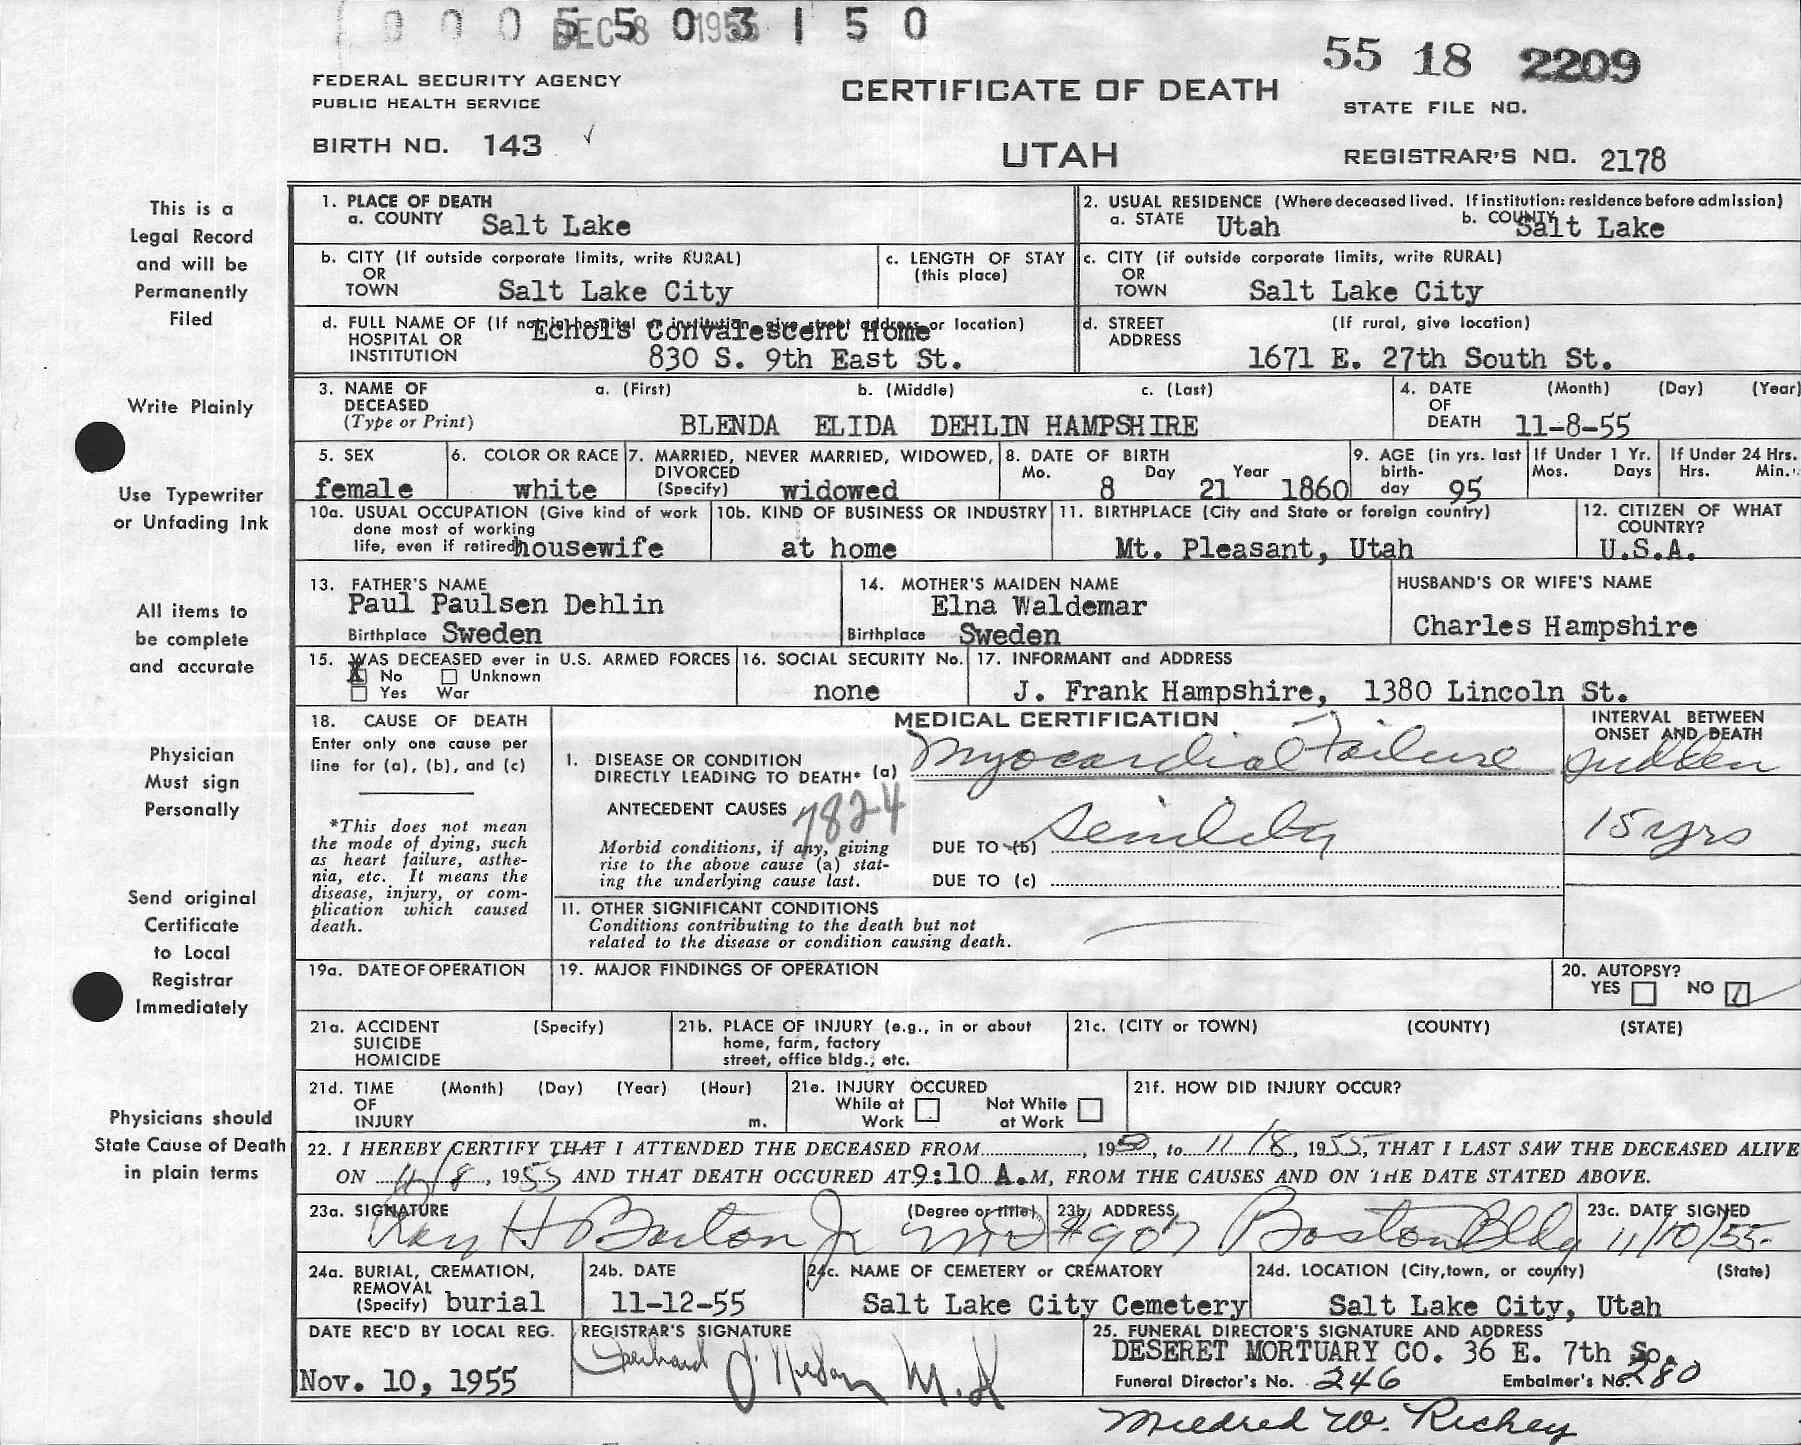 0 0 0 5 5 0 3 1 5 0
DEC 8 1955
55 18 2209
FEDERAL SECURITY AGENCY
PUBLIC HEALTH SERVICE
CERTIFICATE OF DEATH
STATE FILE NO.
BIRTH NO. 143 ✓
UTAH
REGISTRAR'S NO. 2178
This is a
Legal Record
and will be
Permanently
Filed
Write Plainly
Use Typewriter
or Unfading Ink
All items to
be complete
and accurate
Physician
Must sign
Personally
Send original
Certificate
to Local
Registrar
Immediately
Physicians should
State Cause of Death
in plain terms
1. PLACE OF DEATH
a. COUNTY Salt Lake
2. USUAL RESIDENCE (Where deceased lived. If institution: residence before admission)
a. STATE Utah b. COUNTY Salt Lake
b. CITY (If outside corporate limits, write RURAL)
OR
TOWN Salt Lake City
c. LENGTH OF STAY
(this place)
c. CITY (if outside corporate limits, write RURAL)
OR
TOWN Salt Lake City
d. FULL NAME OF (If not in hospital or institution, give street address or location)
HOSPITAL OR
INSTITUTION
Echols Convalescent Home
830 S. 9th East St.
d. STREET (If rural, give location)
ADDRESS
1671 E. 27th South St.
3. NAME OF a. (First) b. (Middle) c. (Last)
DECEASED
(Type or Print) BLENDA ELIDA DEHLIN HAMPSHIRE
4. DATE (Month) (Day) (Year)
OF
DEATH 11-8-55
5. SEX
female
6. COLOR OR RACE
white
7. MARRIED, NEVER MARRIED, WIDOWED,
DIVORCED
(Specify) widowed
8. DATE OF BIRTH
Mo. Day Year
8 21 1860
9. AGE (in yrs. last
birth-
day 95
If Under 1 Yr.
Mos. Days
If Under 24 Hrs.
Hrs. Min.
10a. USUAL OCCUPATION (Give kind of work
done most of working
life, even if retired) housewife
10b. KIND OF BUSINESS OR INDUSTRY
at home
11. BIRTHPLACE (City and State or foreign country)
Mt. Pleasant, Utah
12. CITIZEN OF WHAT
COUNTRY?
U.S.A.
13. FATHER'S NAME
Paul Paulsen Dehlin
Birthplace Sweden
14. MOTHER'S MAIDEN NAME
Elna Waldemar
Birthplace Sweden
HUSBAND'S OR WIFE'S NAME
Charles Hampshire
15. WAS DECEASED ever in U.S. ARMED FORCES
X No Unknown
Yes War
16. SOCIAL SECURITY No.
none
17. INFORMANT and ADDRESS
J. Frank Hampshire, 1380 Lincoln St.
18. CAUSE OF DEATH
Enter only one cause per
line for (a), (b), and (c)
*This does not mean
the mode of dying, such
as heart failure, asthe-
nia, etc. It means the
disease, injury, or com-
plication which caused
death.
MEDICAL CERTIFICATION
INTERVAL BETWEEN
ONSET AND DEATH
1. DISEASE OR CONDITION
DIRECTLY LEADING TO DEATH* (a) Myocardial Failure sudden
ANTECEDENT CAUSES 7824
Morbid conditions, if any, giving
rise to the above cause (a) stat-
ing the underlying cause last.
DUE TO (b) Senility 15 yrs
DUE TO (c)
11. OTHER SIGNIFICANT CONDITIONS
Conditions contributing to the death but not
related to the disease or condition causing death.
19a. DATE OF OPERATION
19. MAJOR FINDINGS OF OPERATION
20. AUTOPSY?
YES NO
21a. ACCIDENT (Specify)
SUICIDE
HOMICIDE
21b. PLACE OF INJURY (e.g., in or about
home, farm, factory
street, office bldg., etc.
21c. (CITY or TOWN) (COUNTY) (STATE)
21d. TIME (Month) (Day) (Year) (Hour)
OF
INJURY m.
21e. INJURY OCCURED
While at Not While
Work at Work
21f. HOW DID INJURY OCCUR?
22. I HEREBY CERTIFY THAT I ATTENDED THE DECEASED FROM , 1950, to 11/8, 1955, THAT I LAST SAW THE DECEASED ALIVE
ON 11/8, 1955 AND THAT DEATH OCCURED AT 9:10 A.M, FROM THE CAUSES AND ON THE DATE STATED ABOVE.
23a. SIGNATURE (Degree or title)
Ray H Barton Jr MD
23b. ADDRESS
#907 Boston Bldg
23c. DATE SIGNED
11/10/55
24a. BURIAL, CREMATION,
REMOVAL
(Specify) burial
24b. DATE
11-12-55
24c. NAME OF CEMETERY or CREMATORY
Salt Lake City Cemetery
24d. LOCATION (City, town, or county) (State)
Salt Lake City, Utah
DATE REC'D BY LOCAL REG.
Nov. 10, 1955
REGISTRAR'S SIGNATURE
25. FUNERAL DIRECTOR'S SIGNATURE AND ADDRESS
DESERET MORTUARY CO. 36 E. 7th So.
Funeral Director's No. 246 Embalmer's No. 280
Mildred W. Richey